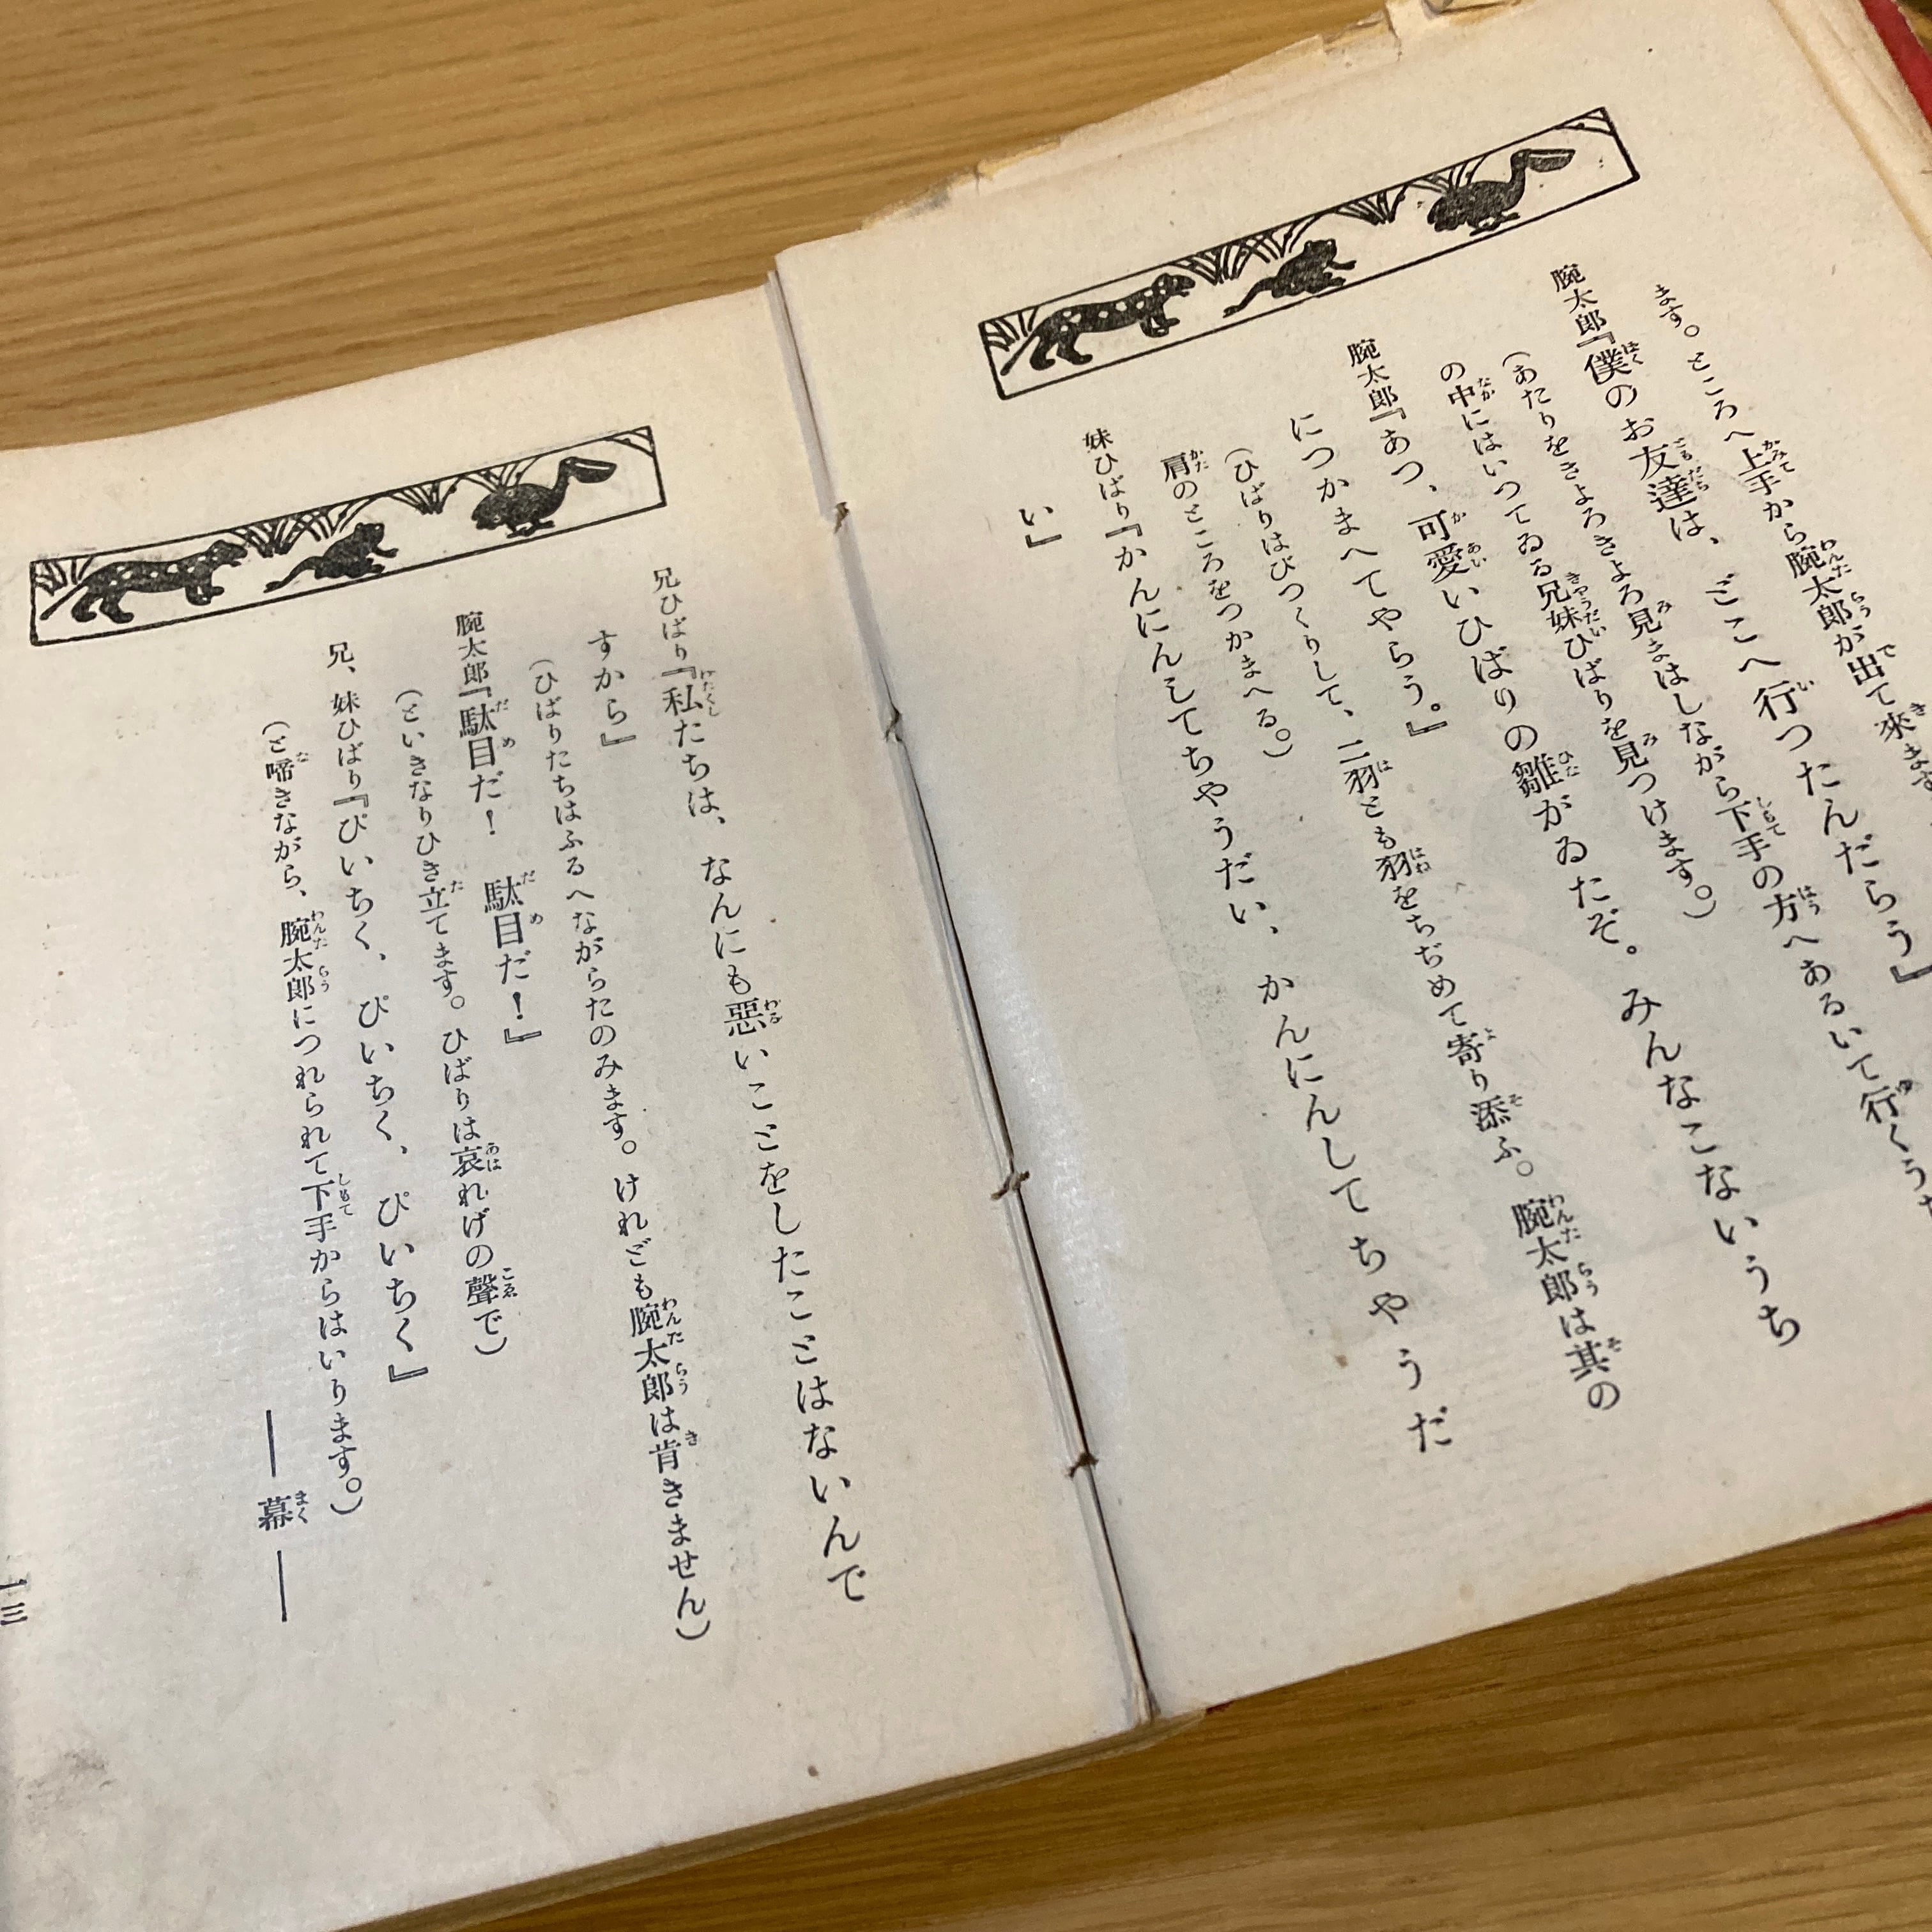 ます。ところへ上手から腕太郎が出て來ます
腕太郎『僕のお友達は、どこへ行つたんだらう』
(あたりをきよろきよろ見まはしながら下手の方へあるいて行くうち
の中にはいつてゐる兄妹ひばりを見つけます。)
腕太郎『あつ、可愛いひばりの雛がゐたぞ。みんなこないうち
につかまへてやらう。』
(ひばりはびつくりして、二羽とも羽をちぢめて寄り添ふ。腕太郎は其の
肩のところをつかまへる。)
妹ひばり『かんにんしてちやうだい、かんにんしてちやうだ
い』
兄ひばり『私たちは、なんにも惡いことをしたことはないんで
すから』
(ひばりたちはふるへながらたのみます。けれども腕太郎は肯きません)
腕太郎『駄目だ！　駄目だ！』
(といきなりひき立てます。ひばりは哀れげの聲で)
兄、妹ひばり『ぴいちく、ぴいちく、ぴいちく』
(と啼きながら、腕太郎につれられて下手からはいります。)
——幕——
一三